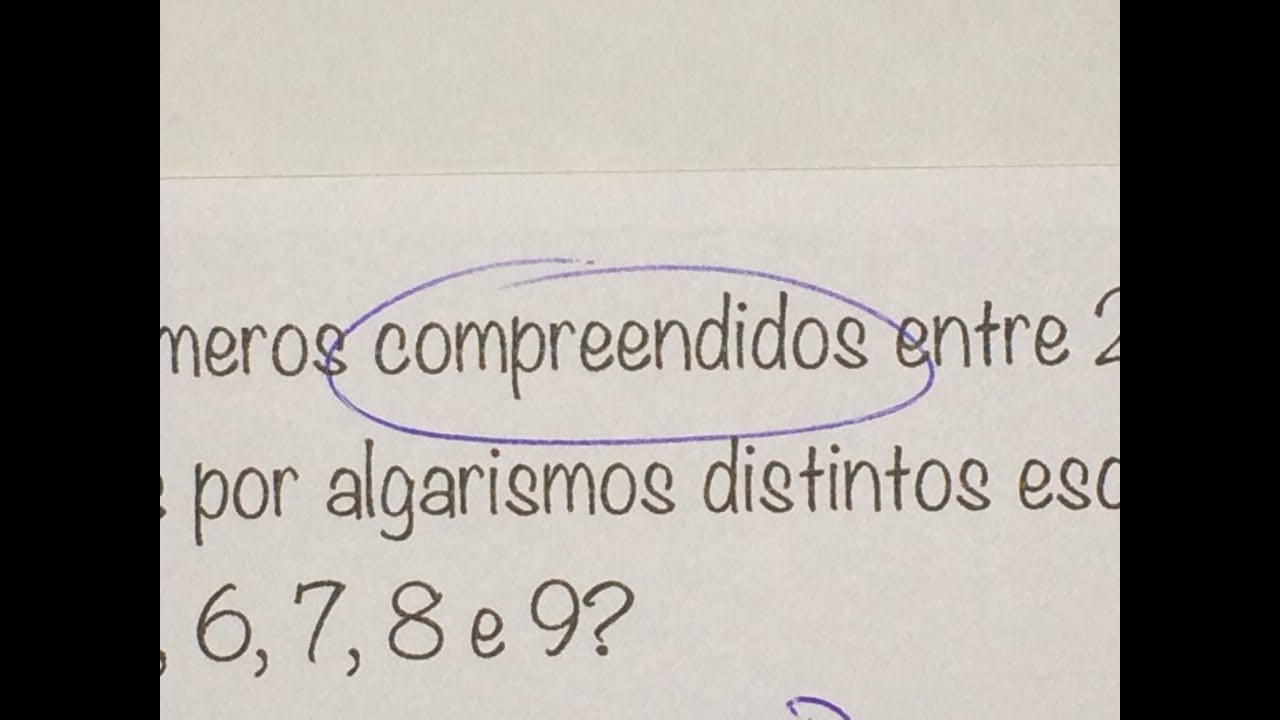 meros compreendidos entre 2
por algarismos distintos esc
, 6, 7, 8 e 9?